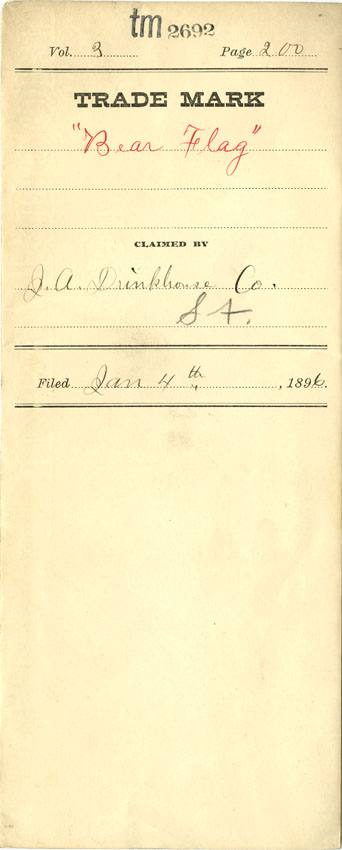 tm 2692
Vol. 3 Page 200
TRADE MARK
"Bear Flag"
CLAIMED BY
J. A. Drinkhouse Co.
S F.
Filed Jan 4th, 1896.